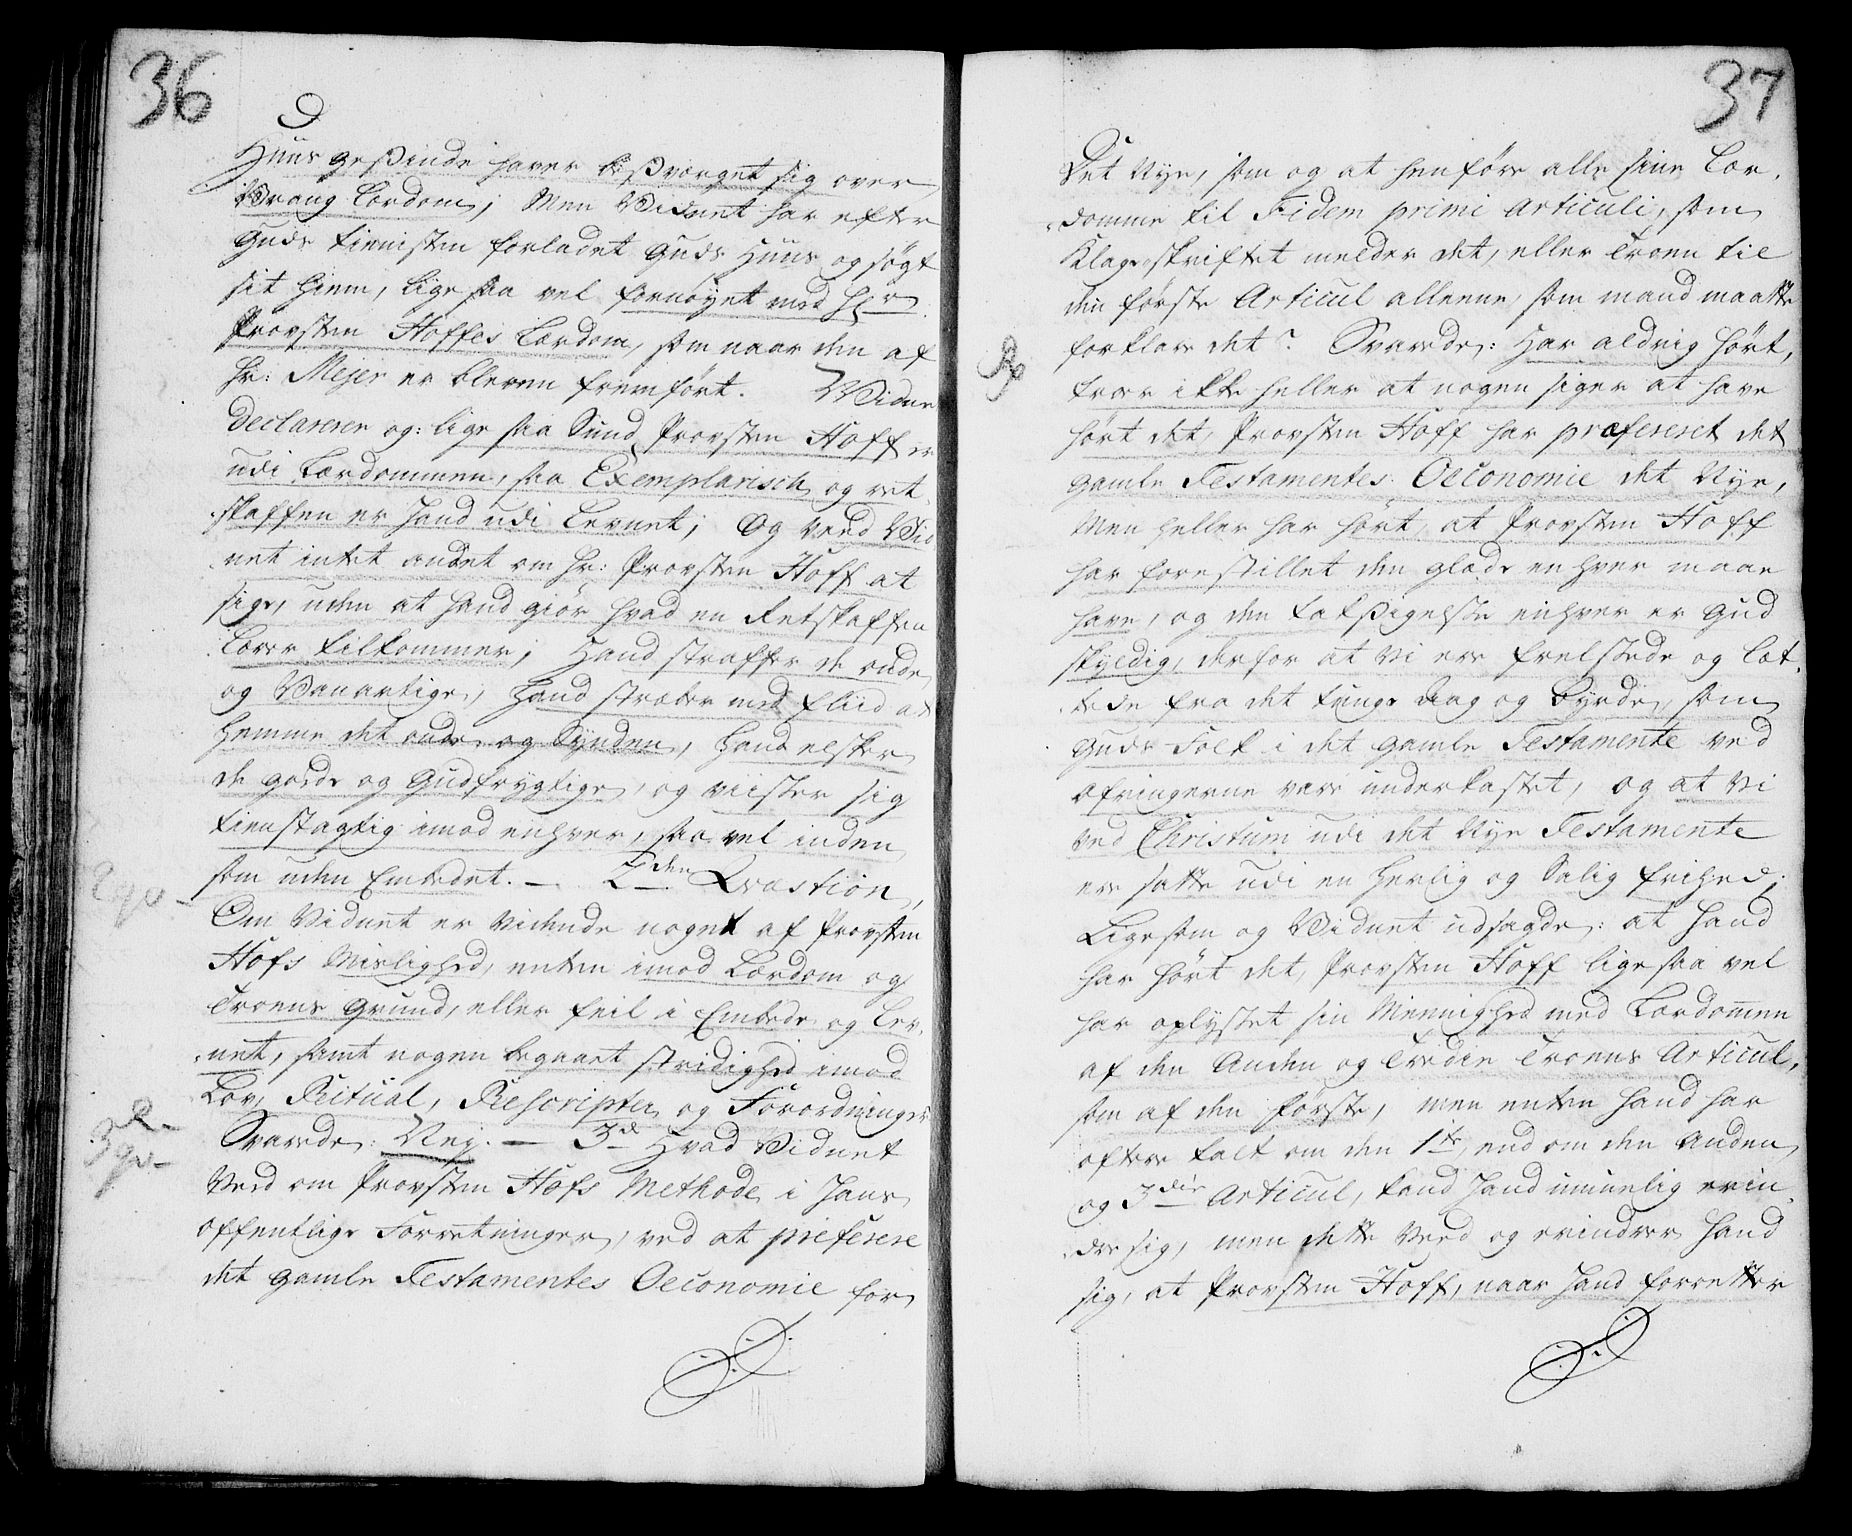 36
Huus gesinde haver besværget sig over
Vrang Lærdom; Men Vidnet har efter
Guds tienisten forladet Guds Huus og søgt
sit hiem, lige saa vel fornøyet med Hr
Provsten Hoffes Lærdom, som naar den af
Hr: Mejer er bleven fremført. Vidne
Declarerer og: lige saa Sund Provsten Hoff er
udi Lærdommen, saa Exemplarisch og ret-
skaffen er hand udi Levnet; Og Veed Vid
net intet andet om Hr: Provsten Hoff at
sige, uden at hand giør hvad en Retskaffen
Lærer tilkommer; Hand straffer de onde
og Vanartige, hand stræber med fliid at
hemme det onde og Synden, hand elsker
de gode og Gudfrygtige, og viiser sig
tienstagtig imod enhver, saa vel inden
som uden Embedet. — 2den Qvæstion,
Om Vidnet er Vidende noget af Provsten
Hofs Mislighed, enten imod Lærdom og
Troens grund, eller feil i Embede og Lev-
net, samt nogen begaaet stridighed imod
Lov, Ritual, Rescripter og Forordninger
Svarede: Nej. — 3d Hvad Vidnet
Veed om Provsten Hofs Methode i hans
offentlige Forretninger, ved at præferere
det gamle Testamentes Oeconomie for
2qv
3die
3qv
37
Det Nye, som og at henføre alle sine Lær-
domme til Fidem primi Articuli, som
Klageskriftet melder det, eller Troen til
den første Articul alleene, som mand maatte
forklare det? Svarede: Har aldrig hørt,
troer ikke heller at nogen siger at have
hørt det, Provsten Hoff har præfereret det
gamle Testamentes Oeconomie det Nye,
Men heller har hørt, at Provsten Hoff
har forestillet den glæde en hver maae
have, og den taksigelse enhver er Gud
skyldig, derfor at Vi ere frelstede og let-
tede fra det tunge Aag og Byrde, som
Guds Folk i det gamle Testamente ved
Ofringerne vare underkastet, og at Vi
ved Christum udi det Nye Testamente
ere satte udi en herlig og Salig frihed;
Ligesom og Vidnet udsagde: at hand
har hørt det, Provsten Hoff lige saa vel
har oplyset sin Menighed med Lærdommen
af den Anden og Tredie Troens Articul,
som af den første, men enten hand har
oftere talt om den 1te, end om den Anden
og 3die Articul, kand hand umuelig erin-
dre sig, men dette Veed og erindrer hand
sig, at Provsten Hoff, naar hand forretter